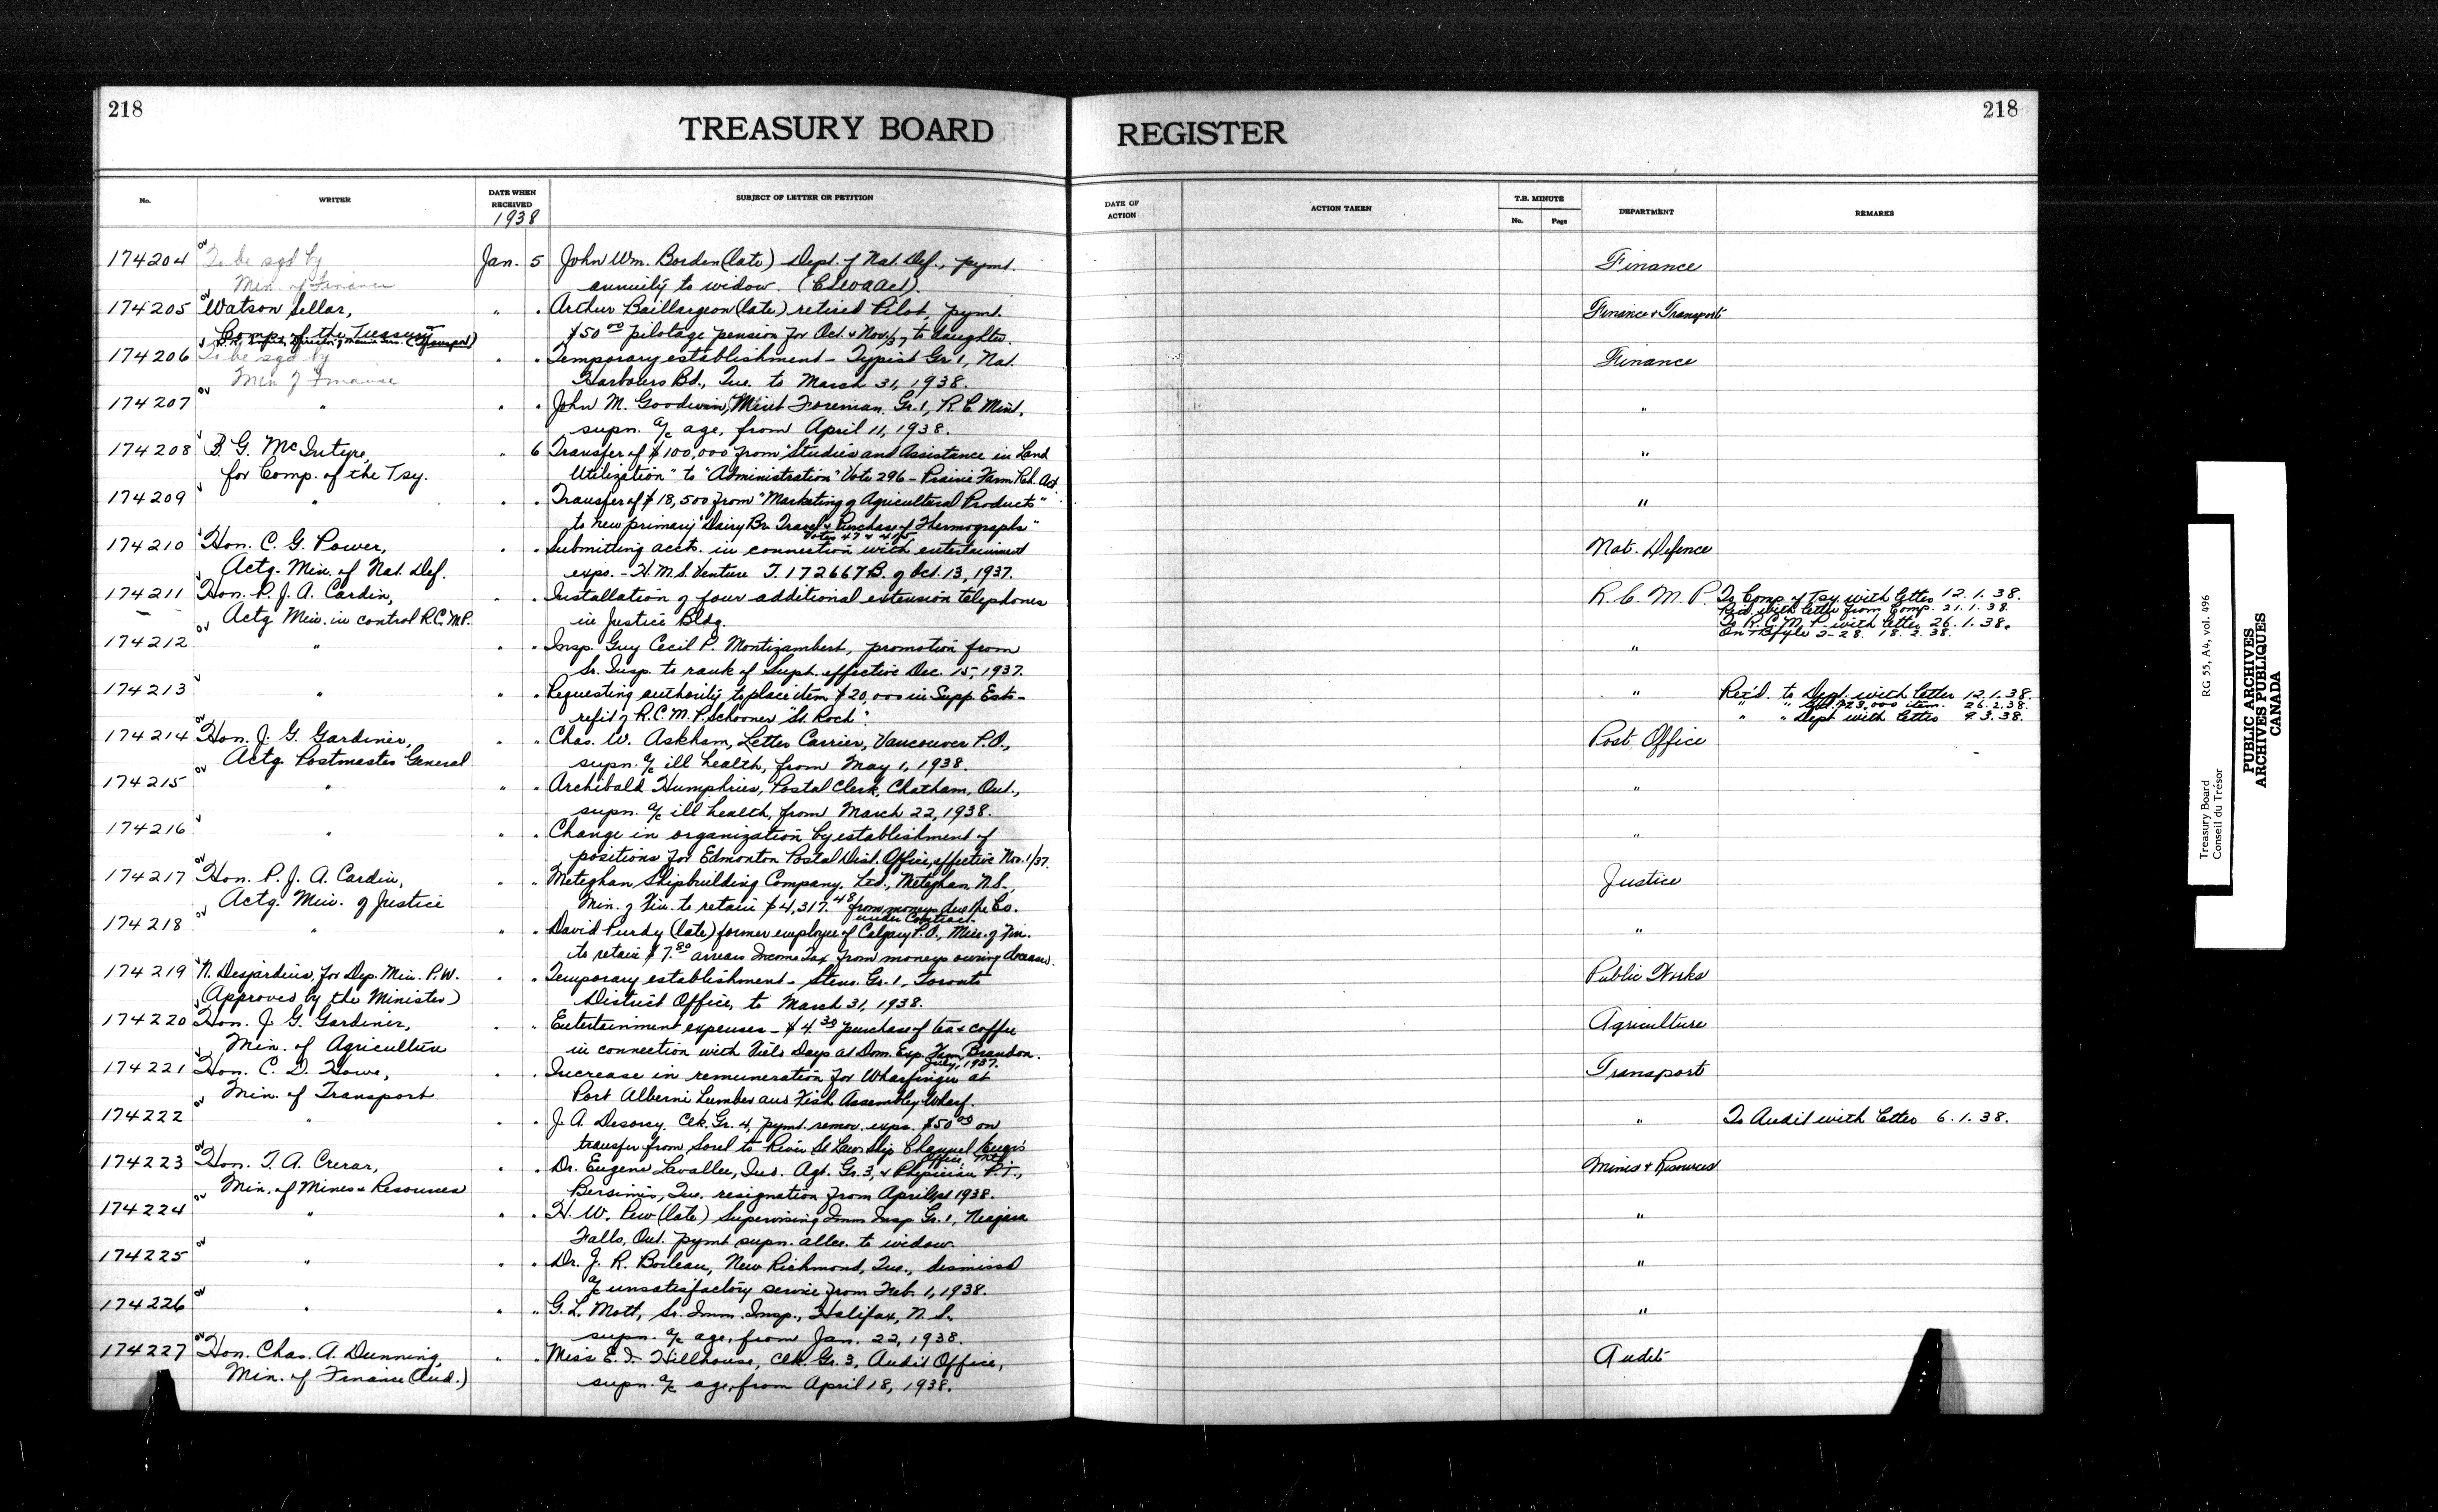 218
TREASURY BOARD
REGISTER
218
No.
WRITER
DATE WHEN RECEIVED
1938
SUBJECT OF LETTER OR PETITION
DATE OF ACTION
ACTION TAKEN
T.B. MINUTE
No.
Page
DEPARTMENT
REMARKS
174204 To be sgd by Jan. 5 John Wm. Borden (late) Dept. of Nat. Def., pymt. Finance
Min. of Finance annuity to widow.
174205 Watson Sellar, " " Arthur Baillargeon (late) retired Pilot, pymt. Finance & Transport
Comp. of the Treasury $50.00 pilotage pension for Oct. & Nov/37 to daughter.
174206 To be sgd by " Temporary establishment - Typist Gr. 1, Nat. Finance
Min of Finance Harbours Bd., Que. to March 31, 1938.
174207 " " " John M. Goodwin, Mint Foreman, Gr. 1, R.C. Mint, "
supn. a/c age, from April 11, 1938.
174208 B. G. McIntyre, " 6 Transfer of $100,000 from "Studies and Assistance in Land "
for Comp. of the Tsy. Utilization" to "Administration" Vote 296 - Prairie Farm Reh. Act.
174209 " " " Transfer of $18,500 from "Marketing of Agricultural Products" "
to new primary "Dairy Br. Travel & Purchase of Thermographs"
174210 Hon. C. G. Power, " " Submitting accts. in connection with entertainment Nat. Defence
Actg. Min. of Nat. Def. exps. - H.M.S. Venture T. 172667B. of Oct. 13, 1937.
174211 Hon. P. J. A. Cardin, " " Installation of four additional extension telephones R.C.M.P. To Comp. of Tsy. with letter 12.1.38.
Actg. Min. in control R.C.M.P. in Justice Bldg. Rec'd with letter from Comp. 21.1.38.
To R.C.M.P. with letter 26.1.38.
174212 " " " Insp. Guy Cecil P. Montizambert, promotion from "
Sr. Insp. to rank of Supt. effective Dec. 15, 1937.
174213 " " " Requesting authority to place item $20,000 in Supp. Ests - " Ret'd. to Dept. with letter 12.1.38.
refit of R.C.M.P. Schooner "St. Roch". " " $23,000 item. 26.2.38.
" " Dept with letter 9.3.38.
174214 Hon. J. G. Gardiner, " " Chas. W. Askham, Letter Carrier, Vancouver P.O., Post Office
Actg. Postmaster General supn. a/c ill health, from May 1, 1938.
174215 " " " Archibald Humphries, Postal Clerk, Chatham, Ont., "
supn. a/c ill health, from March 22, 1938.
174216 " " " Change in organization by establishment of "
positions for Edmonton Postal Dist. Office, effective Nov. 1/37.
174217 Hon. P. J. A. Cardin, " " Meteghan Shipbuilding Company, Ltd., Meteghan, N.S., Justice
Actg. Min. of Justice Min. of Fin. to retain $4,317.48 from moneys due the Co.
under Contract.
174218 " " " David Purdy (late) former employee of Calgary P.O., Min. of Fin. "
to retain $7.80 arrears Income Tax from moneys owing deceased.
174219 N. Desjardins, for Dep. Min. P.W. " " Temporary establishment - Steno. Gr. 1, Toronto Public Works
(Approved by the Minister) District Office, to March 31, 1938.
174220 Hon. J. G. Gardiner, " " Entertainment expenses - $4.30 purchase of tea & coffee Agriculture
Min. of Agriculture in connection with Field Days at Dom. Exp. Farm, Brandon.
July, 1937.
174221 Hon. C. D. Howe, " " Increase in remuneration for Wharfinger at Transport
Min. of Transport Port Alberni Lumber and Fish Assembly Wharf.
174222 " " " J. A. Desorcy, Clk. Gr. 4, pymt. remov. exps. $50.00 on " To Audit with letter 6.1.38.
transfer from Sorel to River St Law. Ship Channel Engr's
Office, Mtl
174223 Hon. T. A. Crerar, " " Dr. Eugene Lavallee, Ind. Agt. Gr. 3, & Physician P.T., Mines & Resources
Min. of Mines & Resources Bersimis, Que. resignation from April 1938.
174224 " " " H. W. Pew (late) Supervising Imm Insp Gr. 1, Niagara "
Falls, Ont. pymt supn. allce. to widow.
174225 " " " Dr. J. R. Boileau, New Richmond, Que., dismissal "
a/c unsatisfactory service from Feb. 1, 1938.
174226 " " " G. L. Mott, Sr. Imm. Insp., Halifax, N.S. "
supn. a/c age, from Jan. 22, 1938.
174227 Hon. Chas. A. Dunning, " " Miss E. I. Hillhouse, Clk. Gr. 3, Audit Office, Audit
Min. of Finance (Aud.) supn. a/c age, from April 18, 1938.
Treasury Board
Conseil du Trésor
RG 55, A4, vol. 496
PUBLIC ARCHIVES
ARCHIVES PUBLIQUES
CANADA